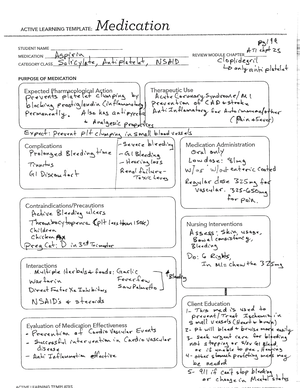 ACTIVE LEARNING TEMPLATE: Medication
Pg 199
ATI chpt 25
STUDENT NAME
MEDICATION Aspirin
REVIEW MODULE CHAPTER
CATEGORY CLASS Salicylate, Antiplatelet, NSAID
Clopidogril
only antiplatelet
PURPOSE OF MEDICATION
Expected Pharmacological Action
Prevents platelet clumping by
blocking prostiglandin (inflammatory)
Permanently. Also has antipyretic
+ Analgesic properties
Therapeutic Use
Acute Coronary Syndrome/MI
Prevention of CAD + stroke
Anti Inflammatory for Autoimmune/other
(Pain + Fever)
Expect: Prevent plt clumping in small blood vessels
Complications
Prolonged Bleeding time
Tinnitus
GI Discomfort
- Severe bleeding
- GI Bleeding
- Hearing loss
Renal failure -
Toxic doses
Medication Administration
Oral only
Low dose: 81mg
w/ or w/out enteric coated
Regular dose 325mg for
vascular. 325-650mg
for pain.
Contraindications/Precautions
Active Bleeding ulcers
Thrombocytopenia (plt less than 150K)
Children
Chicken Pox
Preg Cat: D in 3rd Trimester
Nursing Interventions
Assess: Skin, usage,
Bowel consistency,
Bleeding
Do: 6 Rights
In MI: Chew the 325mg
Interactions
Multiple Herbals + foods: Garlic
Warfarin
Feverfew
Direct Factor Xa Inhibitors
Saw Palmetto
NSAID's + steroids
Bleeding
Evaluation of Medication Effectiveness
- Prevention of Cardio Vascular Events
- Successful intervention in Cardio Vascular
disease
- Anti Inflammation effective
Client Education
1- This med is used to
prevent/Treat Infarction in
small vessels (Heart + brain)
2- Pt will bleed + bruise more easily
3- Seek urgent care for bleeding
not stopping or N/V GI bleed
or if unable to pee/urinate
4- other stomach protecting meds may
be needed
5- 911 if can't stop bleeding
or change in Mental status
ACTIVE LEARNING TEMPLATES